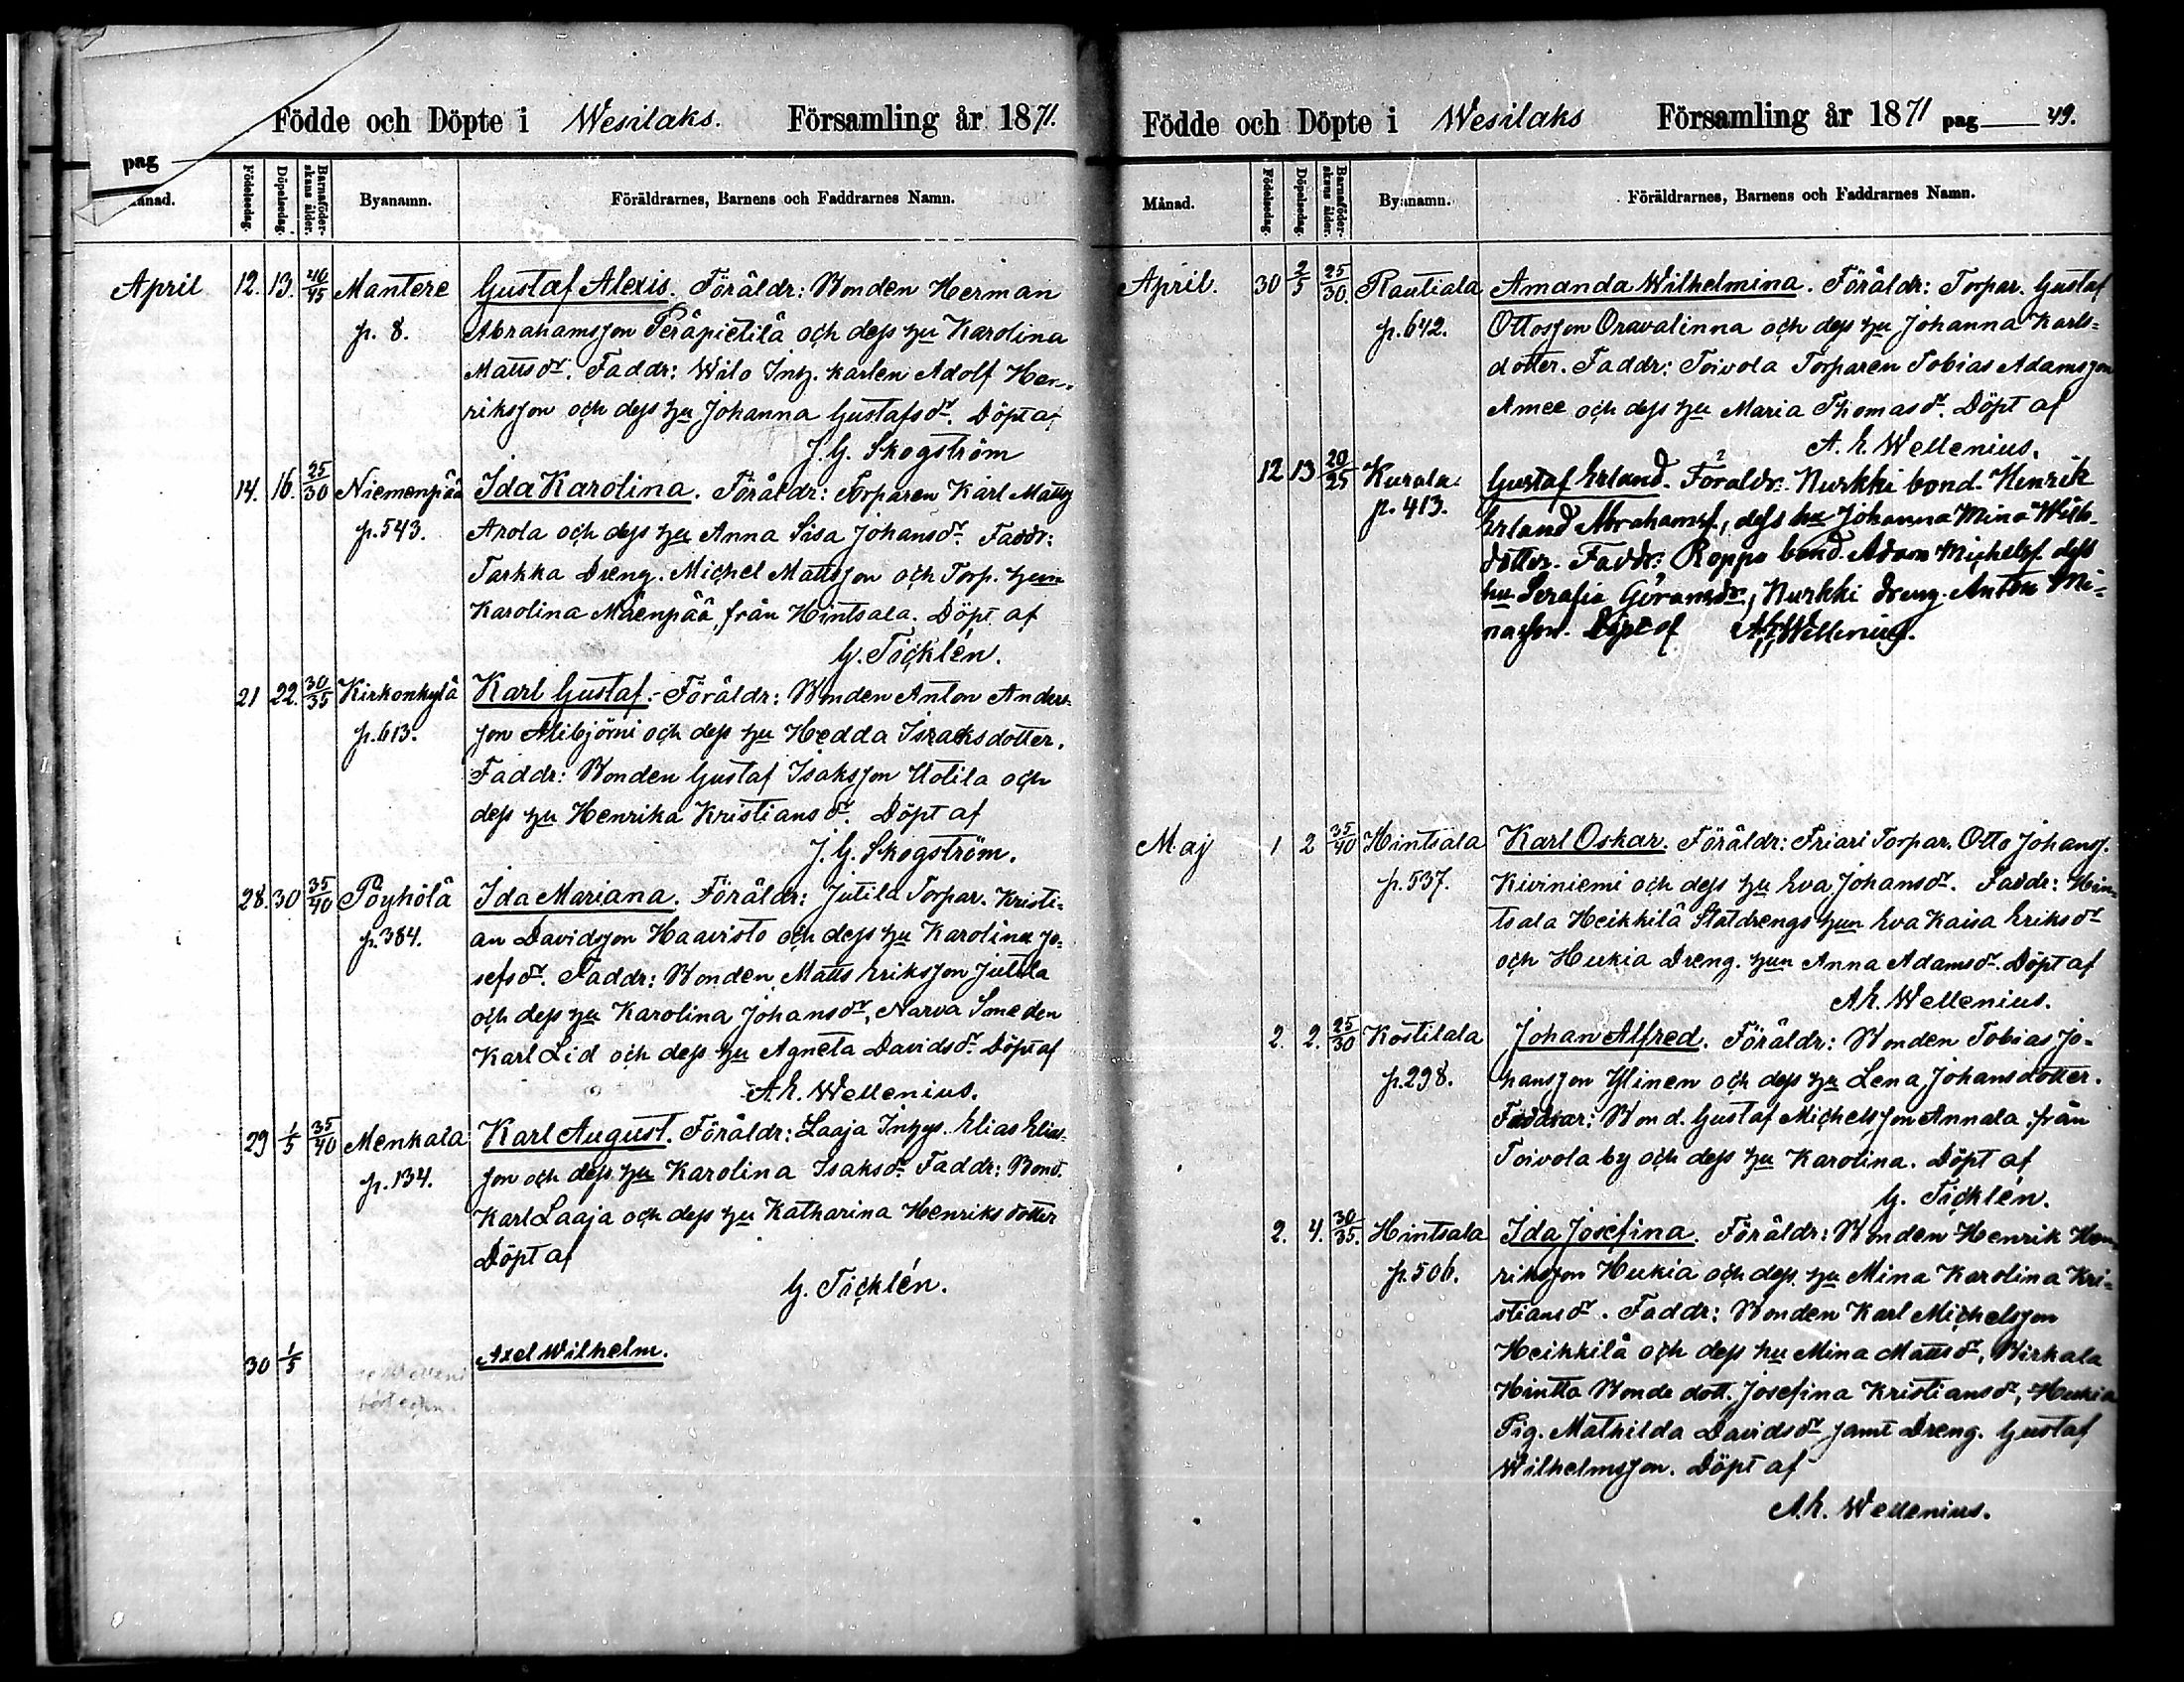 Födde och Döpte i Wesilaks. Församling år 1871.
pag
Månad. Födelsedag. Döpelsedag. Barnaföderskans ålder. Byanamn. Föräldrarnes, Barnens och Faddrarnes Namn.
April 12. 13. 40/45 Mantere Gustaf Alexis. Föräldr: Bonden Herman
p. 8. Abrahamsson Peräpietilä och dess hu Karolina
Mattsdr. Faddr: Wilo Inh. karlen Adolf Hen-
riksson och dess hu Johanna Gustafsdr. Döpt af
J. G. Skogström
14. 16. 25/30 Niemenpää Ida Karolina. Föräldr: Torparen Karl Matts
p. 543. Arola och dess hu Anna Lisa Johansdr. Faddr:
Tarkka Dreng. Michel Mattsson och Torp. hun
Karolina Mäenpää, från Hintsala. Döpt af
G. Ticklén.
21 22. 30/35 Kirkonkylä Karl Gustaf. Föräldr: Bonden Anton Anders-
p. 613. son Alibjörni och dess hu Hedda Isaaksdotter.
Faddr: Bonden Gustaf Isaksson Uotila och
dess hu Henrika Kristiansdr. Döpt af
J. G. Skogström.
28. 30 35/40 Pöyhölä Ida Mariana. Föräldr: Jutila Torpar. Kristi-
p. 384. an Davidsson Haavisto och dess hu Karolina Jo-
sefsdr. Faddr: Bonden Matts Eriksson Jutila
och dess hu Karolina Johansdr, Narva Smeden
Karl Lid och dess hu Agneta Davidsdr. Döpt af
A. E. Wellenius.
29 1/5 35/40 Menkala Karl August. Föräldr: Laaja Inhys. Elias Elias-
p. 134. son och dess hu Karolina Isaksdr. Faddr: Bond.
Karl Laaja och dess hu Katharina Henriksdotter
Döpt af
G. Ticklén.
30 1/5 Axel Wilhelm.
Födde och Döpte i Wesilaks Församling år 1871 pag 49.
Månad. Födelsedag. Döpelsedag. Barnaföderskans ålder. Byanamn. Föräldrarnes, Barnens och Faddrarnes Namn.
April. 30 2/5 25/30. Rautiala Amanda Wilhelmina. Föräldr: Torpar. Gustaf
p. 642. Ottosson Oravalinna och dess hu Johanna Karls-
dotter. Faddr: Toivola Torparen Tobias Adamsson
Amee och dess hu Maria Thomasdr. Döpt af
A. E. Wellenius.
12 13 20/25 Kurala Gustaf Erland. Föraldr: Nurkki bond. Henrik
p. 413. Erland Abrahamss, dess hu Johanna Mina Wilh-
dotter. Faddr: Roppo bond. Adam Michelss. dess
hu Serafia Göransdr, Nurkki dreng. Anton Mi-
nasson. Döpt af A. E. Wellenius.
Maj 1 2 35/40 Hintsala Karl Oskar. Föräldr: Friari Torpar. Otto Johanss.
p. 537. Kiviniemi och dess hu Eva Johansdr. Faddr: Hin-
tsala Heikkilä Statdrengs hun Eva Kaisa Eriksdr
och Hukia Dreng. hun Anna Adamsdr. Döpt af
A. E. Wellenius.
2. 2. 25/30 Kostilala Johan Alfred. Föräldr: Bonden Tobias Jo-
p. 298. hansson Ylinen och dess hu Lena Johansdotter.
Faddrar: Bond. Gustaf Michelsson Annala från
Toivola by och dess hu Karolina. Döpt af
G. Ticklén.
2. 4. 30/35. Hintsala Ida Josefina. Föräldr: Bonden Henrik Hen-
p. 506. riksson Hukia och dess hu Mina Karolina Kri-
stiansdr. Faddr: Bonden Karl Michelsson
Heikkilä och dess hu Mina Mattsdr, Birkala
Hintta Bonde dott. Josefina Kristiansdr, Hukia
Pig. Mathilda Davidsdr samt Dreng. Gustaf
Wilhelmsson. Döpt af
A. E. Wellenius.